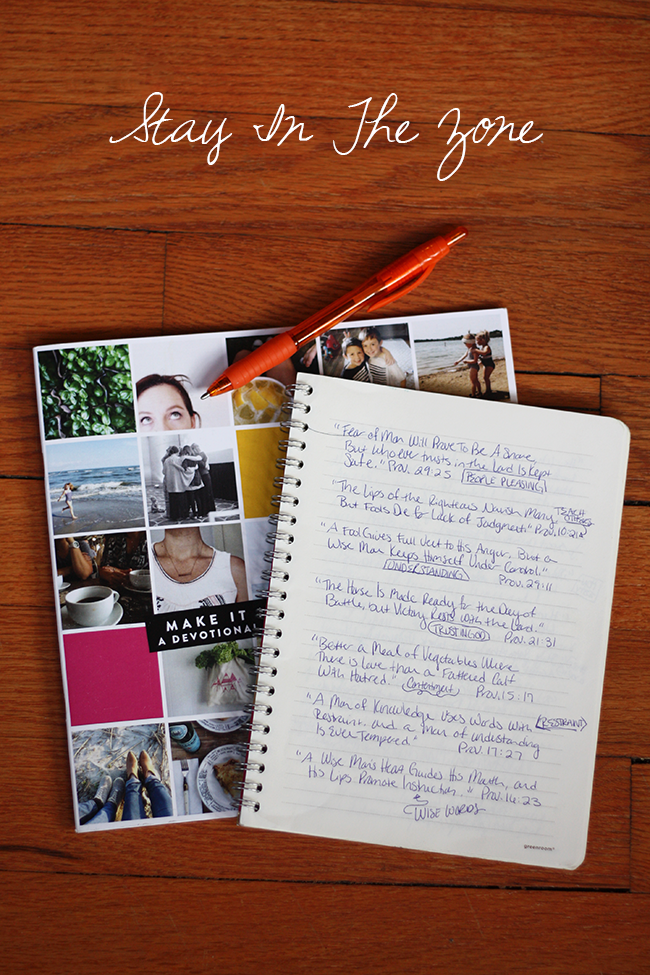 Stay In The Zone
MAKE IT
A DEVOTIONAL
"Fear of Man Will Prove To Be A Snare,
But whoever trusts in the Lord Is Kept
Safe." Prov. 29:25 PEOPLE PLEASING
"The Lips of the Righteous Nourish Many, TEACH OTHERS
But Fools Die for Lack of Judgment." Prov. 10:21
"A Fool Gives Full Vent to His Anger, But a
Wise Man Keeps Himself Under Control."
UNDERSTANDING Prov. 29:11
"The Horse Is Made Ready for the Day of
Battle, but Victory Rests with the Lord."
TRUST IN GOD Prov. 21:31
"Better a Meal of Vegetables Where
There is Love than a Fattened Calf
With Hatred." Contentment Prov. 15:17
"A Man of Knowledge Uses Words With RESTRAINT
Restraint and a man of understanding
Is Even Tempered" Prov. 17:27
"A Wise Man's Heart Guides His Mouth, and
His Lips Promote Instruction." Prov. 16:23
WISE WORDS
greenroom